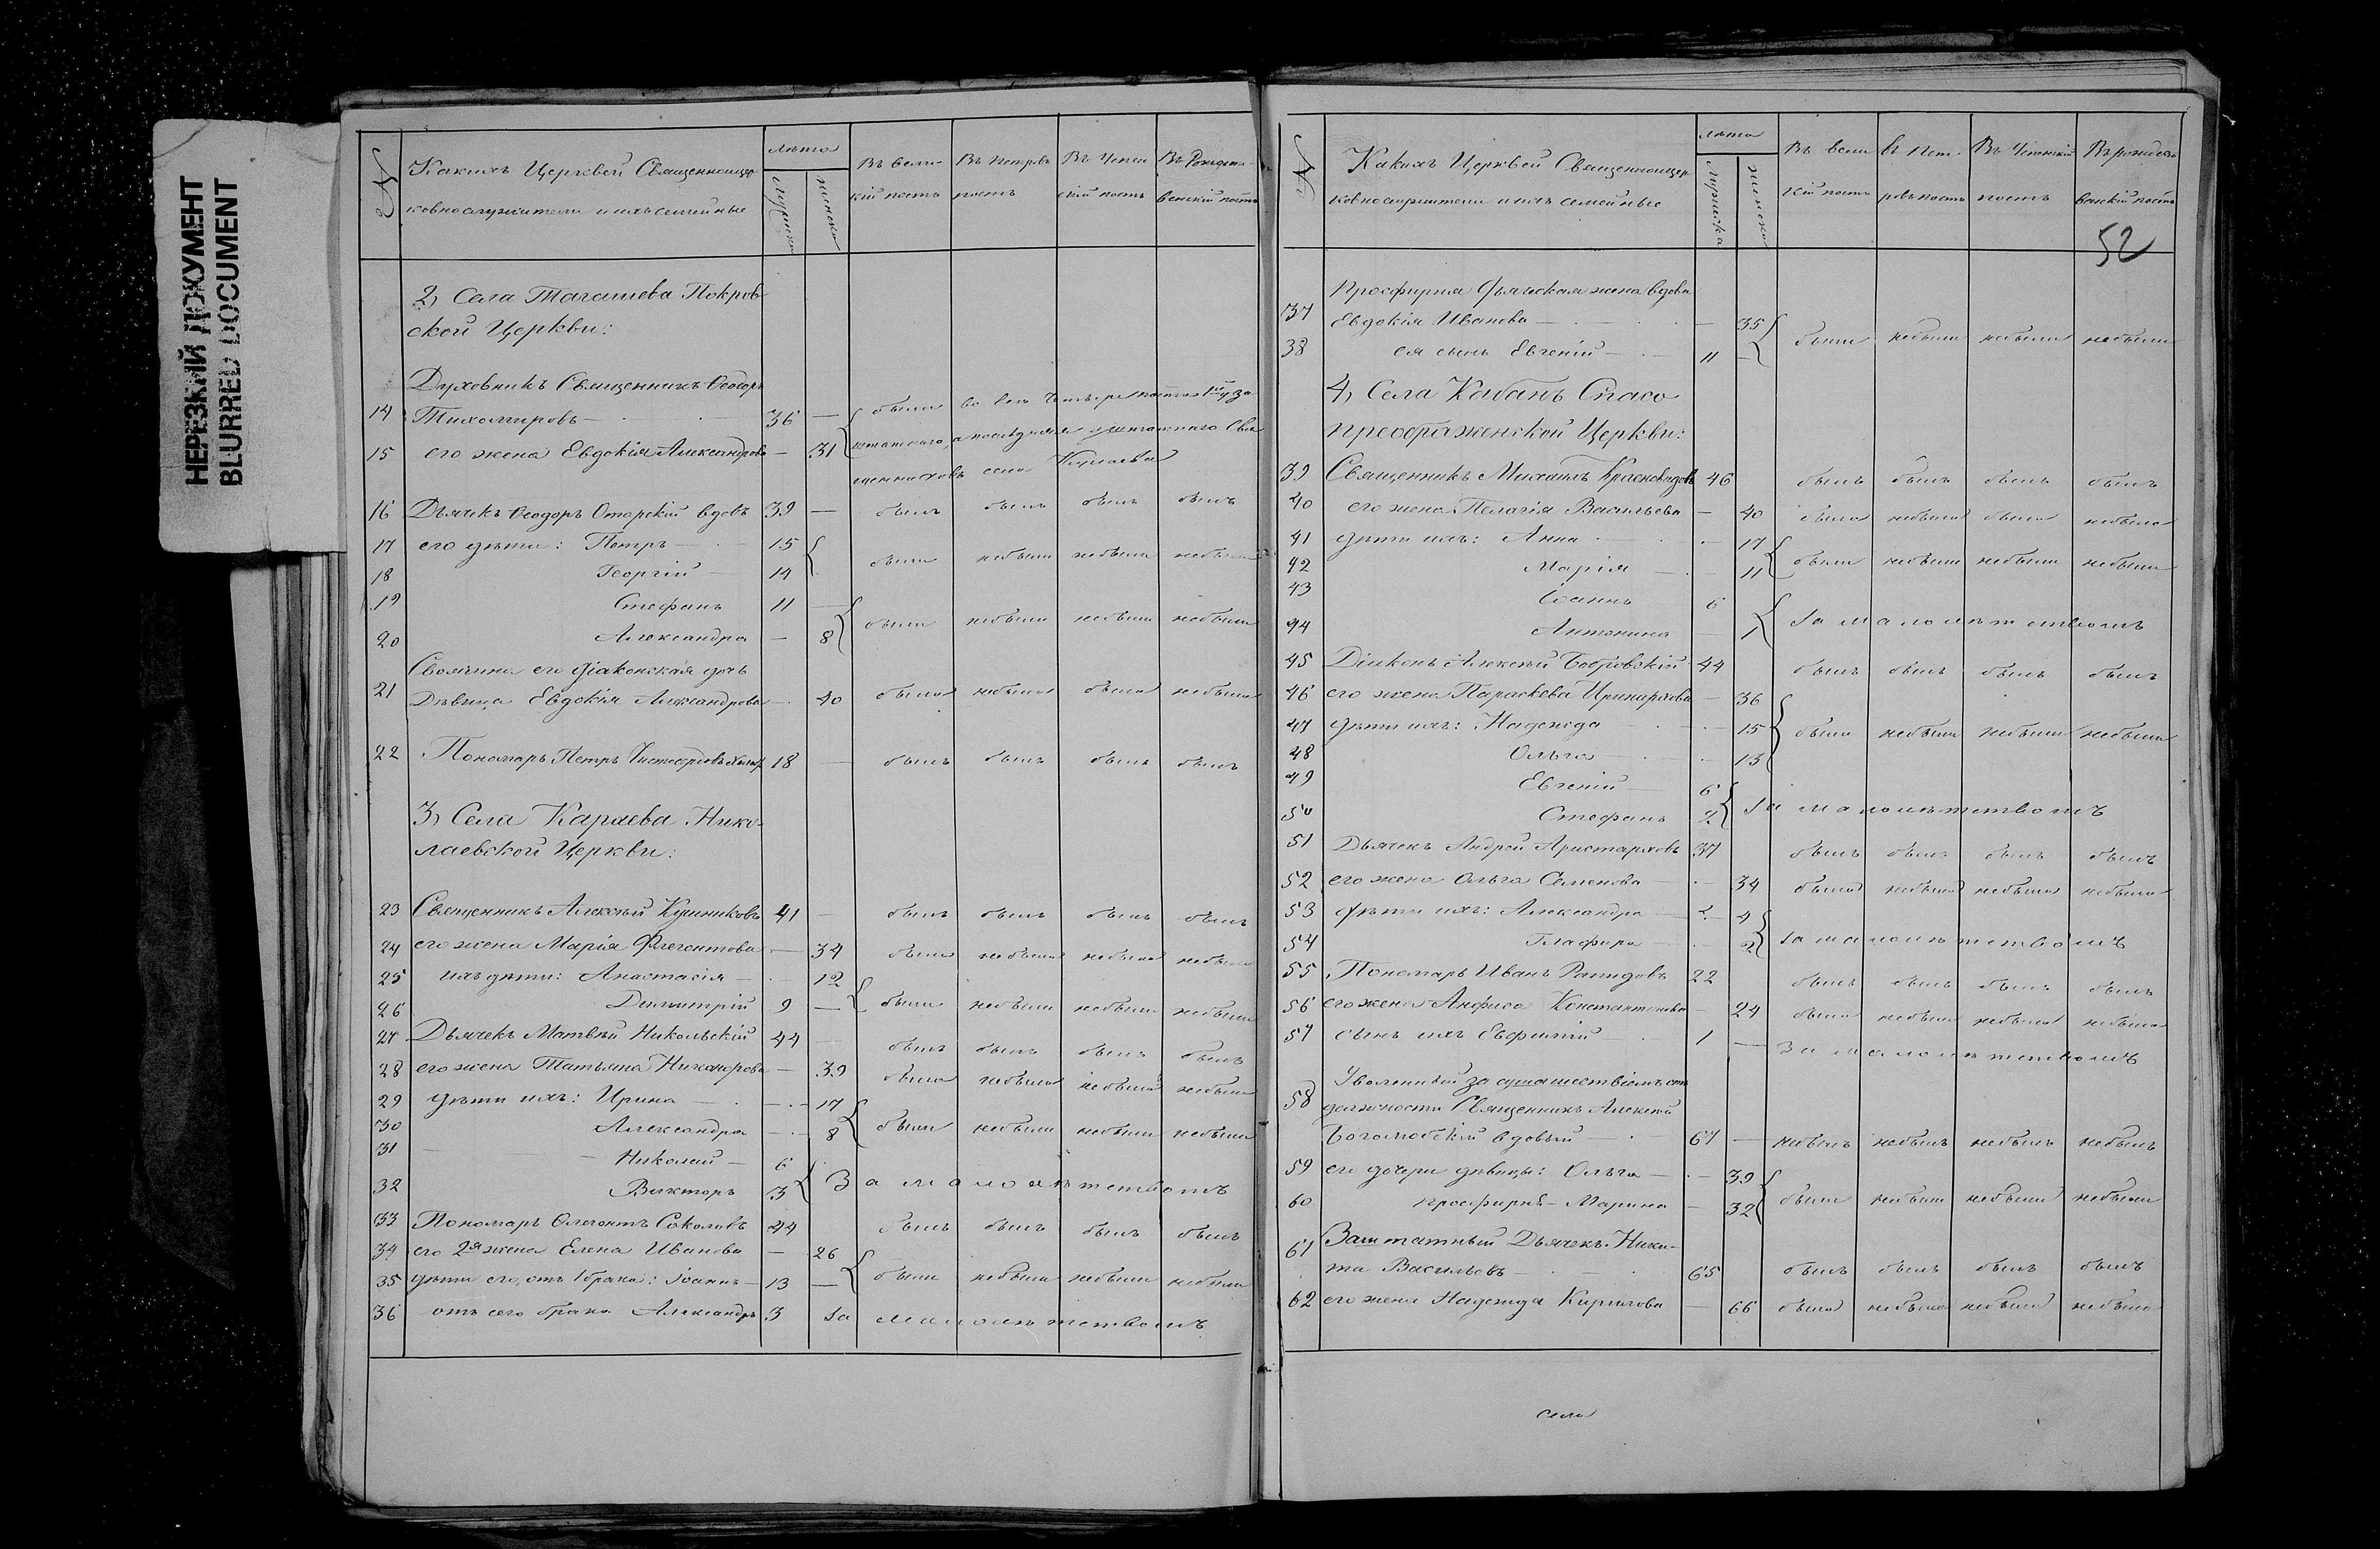 НЕРЕЗКИЙ ДОКУМЕНТ
BLURRED DOCUMENT
№ Какихъ Церквей Священноцер- лѣта Въ вели- Въ Петровъ Въ Успен- Въ Рождест-
ковнослужители и ихъ семейные мужска женска кій постъ постъ скій постъ венскій постъ
2, Села Тагашева Покров-
ской Церкви:
Духовникъ Священникъ Ѳеодоръ
14 Тихомировъ 36 — были во всѣ четыре поста у за
15 его жена Евдокія Александрова — 31 штатнаго, а послѣдняя у штатнаго Свя
щенниковъ села
16 Дьячекъ Ѳеодоръ Оторскій вдовъ 39 — былъ былъ былъ былъ
17 его дѣти: Петръ 15 были небыли небыли небыли
18 Георгій 14
19 Стефанъ 11 — были небыли небыли небыли
20 Александра — 8
Своячина его діаконская дочь
21 Дѣвица Евдокія Александрова — 40 была небыла была небыла
22 Пономарь Петръ 18 — былъ былъ былъ былъ
3, Села Караева Нико-
лаевской Церкви:
23 Священникъ Алексѣй Кушниковъ 41 — былъ былъ былъ былъ
24 его жена Марія Флегонтова — 34 была небыла небыла небыла
25 ихъ дѣти: Анастасія — 12
26 Димитрій 9 — были небыли небыли небыли
27 Дьячекъ Матвѣй Никольскій 44 — былъ былъ былъ былъ
28 его жена Татьяна Никанорова — 39 была небыла небыла небыла
29 дѣти ихъ: Ирина — 17
30 Александра — 8 были небыли небыли небыли
31 Николай 6
32 Викторъ 3 За малолѣтствомъ
33 Пономарь Флегонтъ Соколовъ 44 былъ былъ былъ былъ
34 его 2я жена Елена Иванова — 26
35 дѣти его, отъ 1 брака: Іоаннъ 13 — были небыли небыли небыли
36 отъ сего брака Александръ 3 За малолѣтствомъ
№ Какихъ Церквей Священноцер- лѣта Въ вели- въ Пет- Въ Успенскій Въ рождест-
ковнослужители и ихъ семейные мужска женска кій постъ ровъ постъ постъ венскій постъ
52
Просфирня дьяческая жена вдова
37 Евдокія Иванова — 35 были небыли небыли небыли
38 ея сынъ Евгеній 11 —
4, Села Кабанъ Спасо
преображенской Церкви:
39 Священникъ Михаилъ Красновидовъ 46 былъ былъ былъ былъ
40 его жена Пелагія Васильева — 40 была небыла была небыла
41 дѣти ихъ: Анна — 17
42 Марія — 11 были небыли небыли небыли
43 Іоаннъ 6
44 Антонина — 1 За малолѣтствомъ
45 Діаконъ Алексѣй Бобровскій 44 былъ былъ былъ былъ
46 его жена Параскева Иринархова — 36
47 дѣти ихъ: Надежда — 15 были небыли небыли небыли
48 Ольга — 13
49 Евгеній 6
50 Стефанъ 2 За малолѣтствомъ
51 Дьячекъ Андрей Аристарховъ 37 былъ былъ былъ былъ
52 его жена Ольга Семенова — 34 была небыла небыла небыла
53 дѣти ихъ: Александра — 4
54 Глафира — 2 За малолѣтствомъ
55 Пономарь Иванъ Рапидовъ 22 былъ былъ былъ былъ
56 его жена Анфиса Константинова — 24 была небыла небыла небыла
57 сынъ ихъ Евфимій 1 — За малолѣтствомъ
Уволенный за сумашествіемъ отъ
58 должности Священникъ Алексѣй
Боголюбскій вдовый 67 — небылъ небылъ небылъ небылъ
59 его дочери дѣвицы: Ольга — 39
60 просфирня Марина — 32 были небыли небыли небыли
61 Заштатный Дьячекъ Ники-
та Васильевъ 65 былъ былъ былъ былъ
62 его жена Надежда Кирилова — 66 была небыла небыла небыла
Села